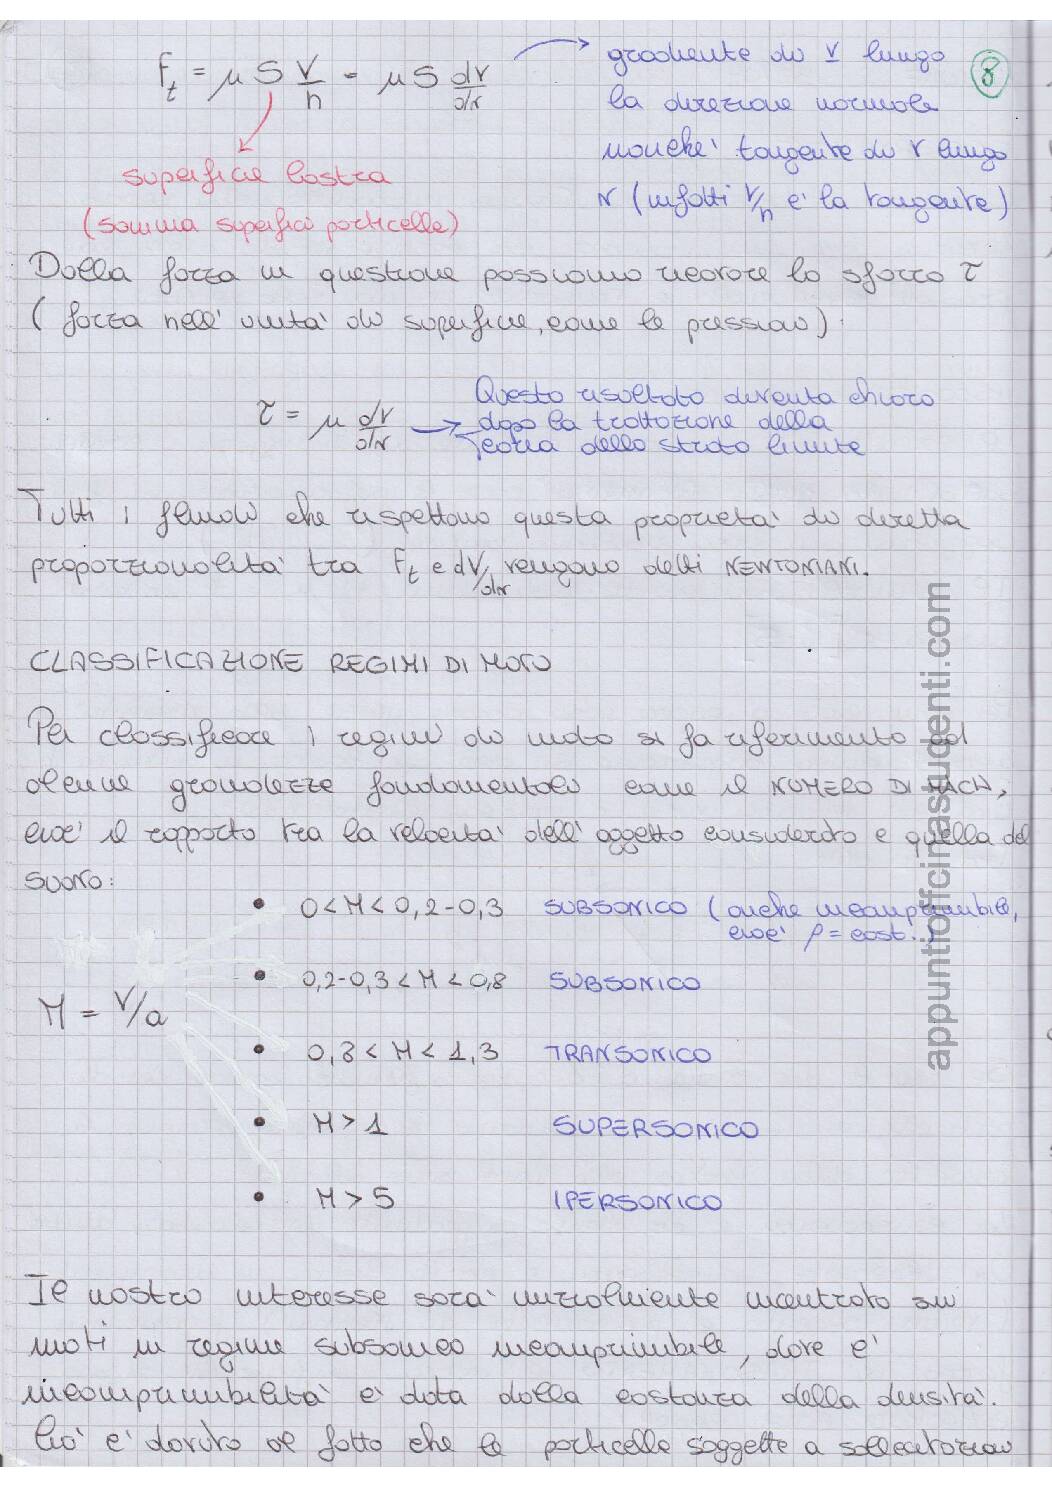 F_t = μ S V/n = μ S dV/dn
gradiente di V lungo
la direzione normale
nonche' tangente di V lungo
n (infatti V/n e' la tangente)
8
superficie lastra
(somma superfici particelle)
Dalla forza in questione possiamo ricavare lo sforzo τ
(forza nell' unita' di superficie, come le pressioni):
τ = μ dV/dn
Questo risultato diventa chiaro
dopo la trattazione della
Teoria dello strato limite
Tutti i fluidi che rispettano questa proprieta' di diretta
proporzionalita' tra F_t e dV/dn vengono detti NEWTONIANI.
CLASSIFICAZIONE REGIMI DI MOTO
Per classificare i regimi di moto si fa riferimento ad
alcune grandezze fondamentali come il NUMERO DI MACH,
cioe' il rapporto tra la velocita' dell' oggetto considerato e quella del
suono:
• 0<M<0,2-0,3 SUBSONICO (anche incomprimibile,
cioe' ρ = cost.)
• 0,2-0,3<M<0,8 SUBSONICO
M = V/a
• 0,8<M<1,3 TRANSONICO
• M>1 SUPERSONICO
• M>5 IPERSONICO
Il nostro interesse sara' inizialmente incentrato sui
moti in regime subsonico incomprimibile, dove e'
incomprimibilita' e' data dalla costanza della densita'.
Cio' e' dovuto al fatto che le particelle soggette a sollecitazioni
appuntiofficinastudenti.com